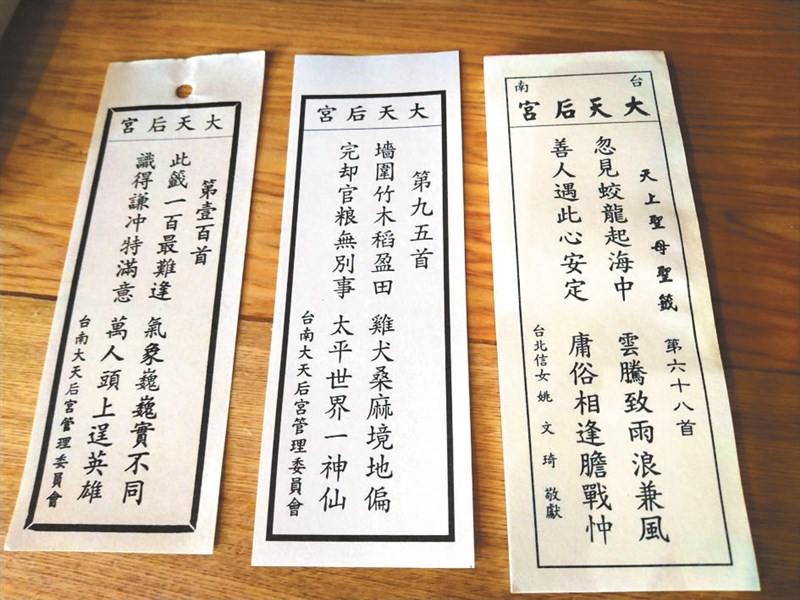 大天后宮
第壹百首
此籤一百最難逢 氣象巍巍實不同
識得謙冲特滿意 萬人頭上逞英雄
台南大天后宮管理委員會
大天后宮
第九五首
墻圍竹木稻盈田 雞犬桑麻境地偏
完却官粮無別事 太平世界一神仙
台南大天后宮管理委員會
台南
大天后宮
天上聖母聖籤 第六十八首
忽見蛟龍起海中 雲騰致雨浪兼風
善人遇此心安定 庸俗相逢膽戰忡
台北信女 姚文琦 敬獻